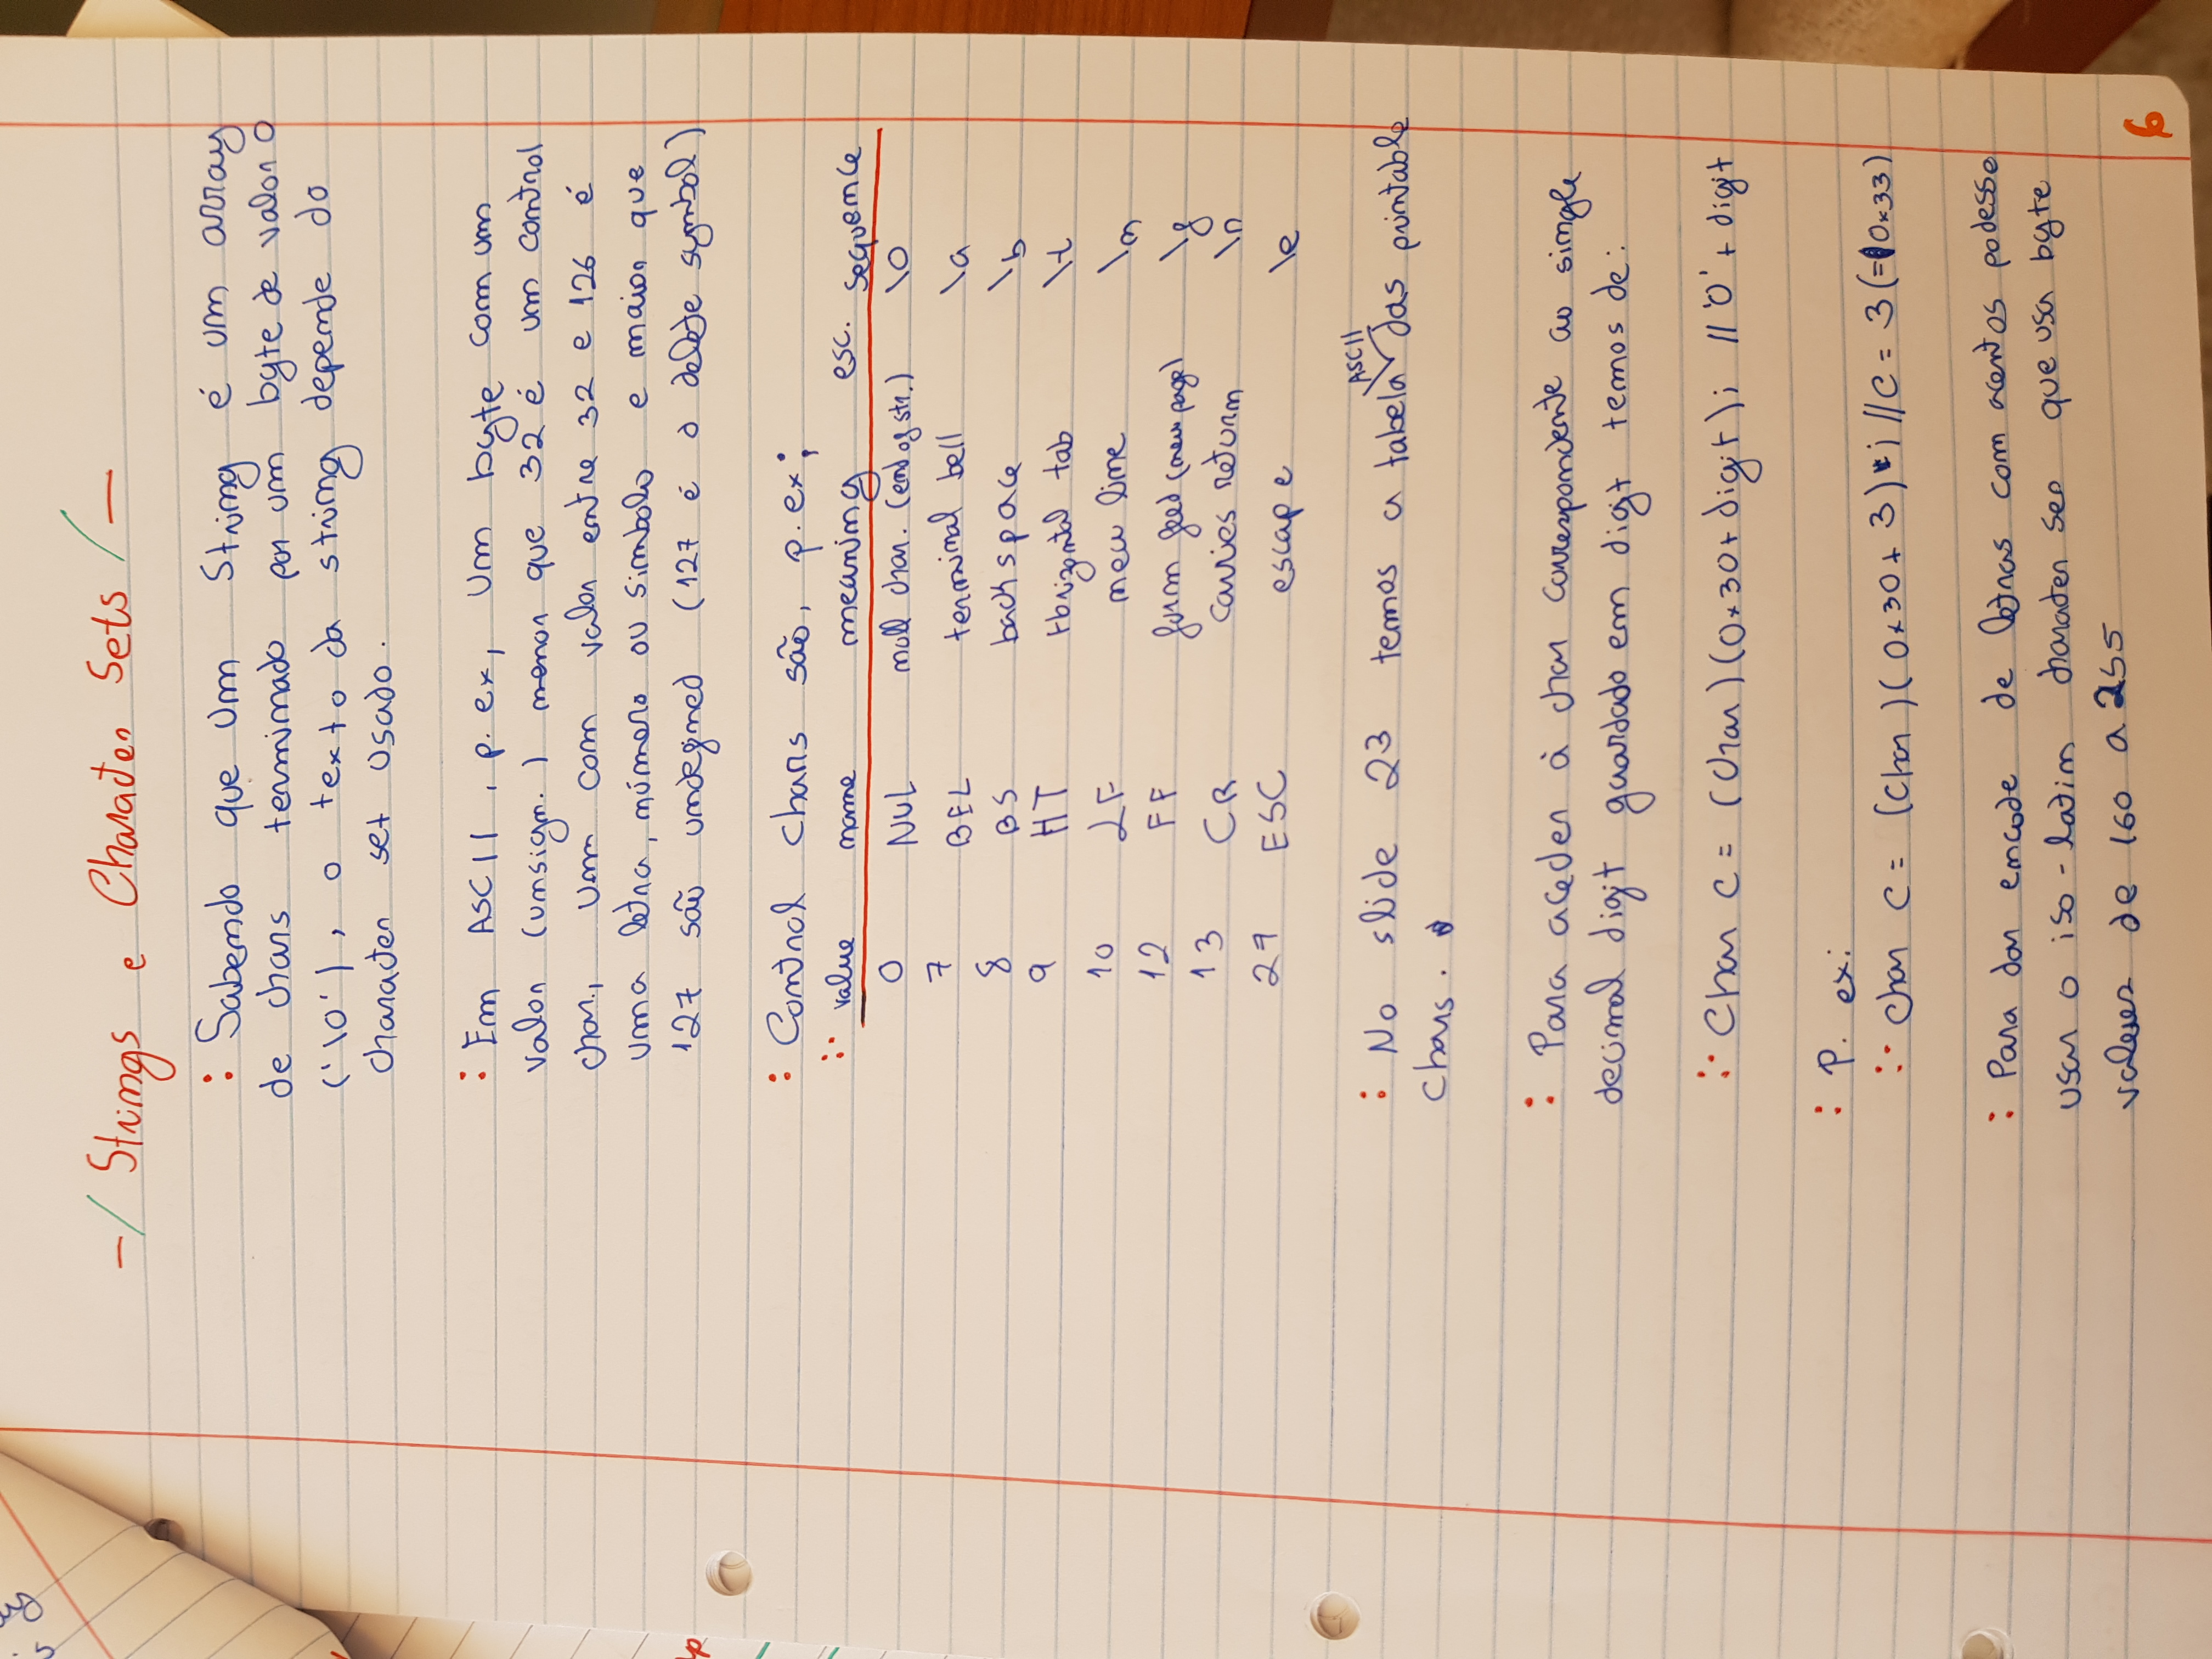 -/ Strings e Character Sets /-
: Sabendo que um String é um array
de chars terminado por um byte de valor 0
('\0'), o texto da string depende do
character set usado.
: Em ASCII, p. ex, um byte com um
valor (unsign.) menor que 32 é um control
char., um com valor entre 32 e 126 é
uma letra, número ou simbolo e maior que
127 são undefined (127 é o delete symbol)
: Control chars são, p. ex;
:· value name meaning esc. sequence
0 NUL null char. (end of str.) \0
7 BEL terminal bell \a
8 BS backspace \b
9 HT Horizontal tab \t
10 LF new line \n
12 FF form feed (new page) \f
13 CR carries return \r
27 ESC escape \e
: No slide 23 temos a tabela ASCII das printable
chars.
: Para aceder à char correspondente ao single
decimal digit guardado em digit temos de:
:· Char c = (char)(0x30+digit); // '0' + digit
: P. ex:
:· char c = (char)(0x30+3); // c = 3 (=0x33)
: Para dar encode de letras com acentos podesse
usar o iso-latin character set que usa byte
values de 160 a 255
6